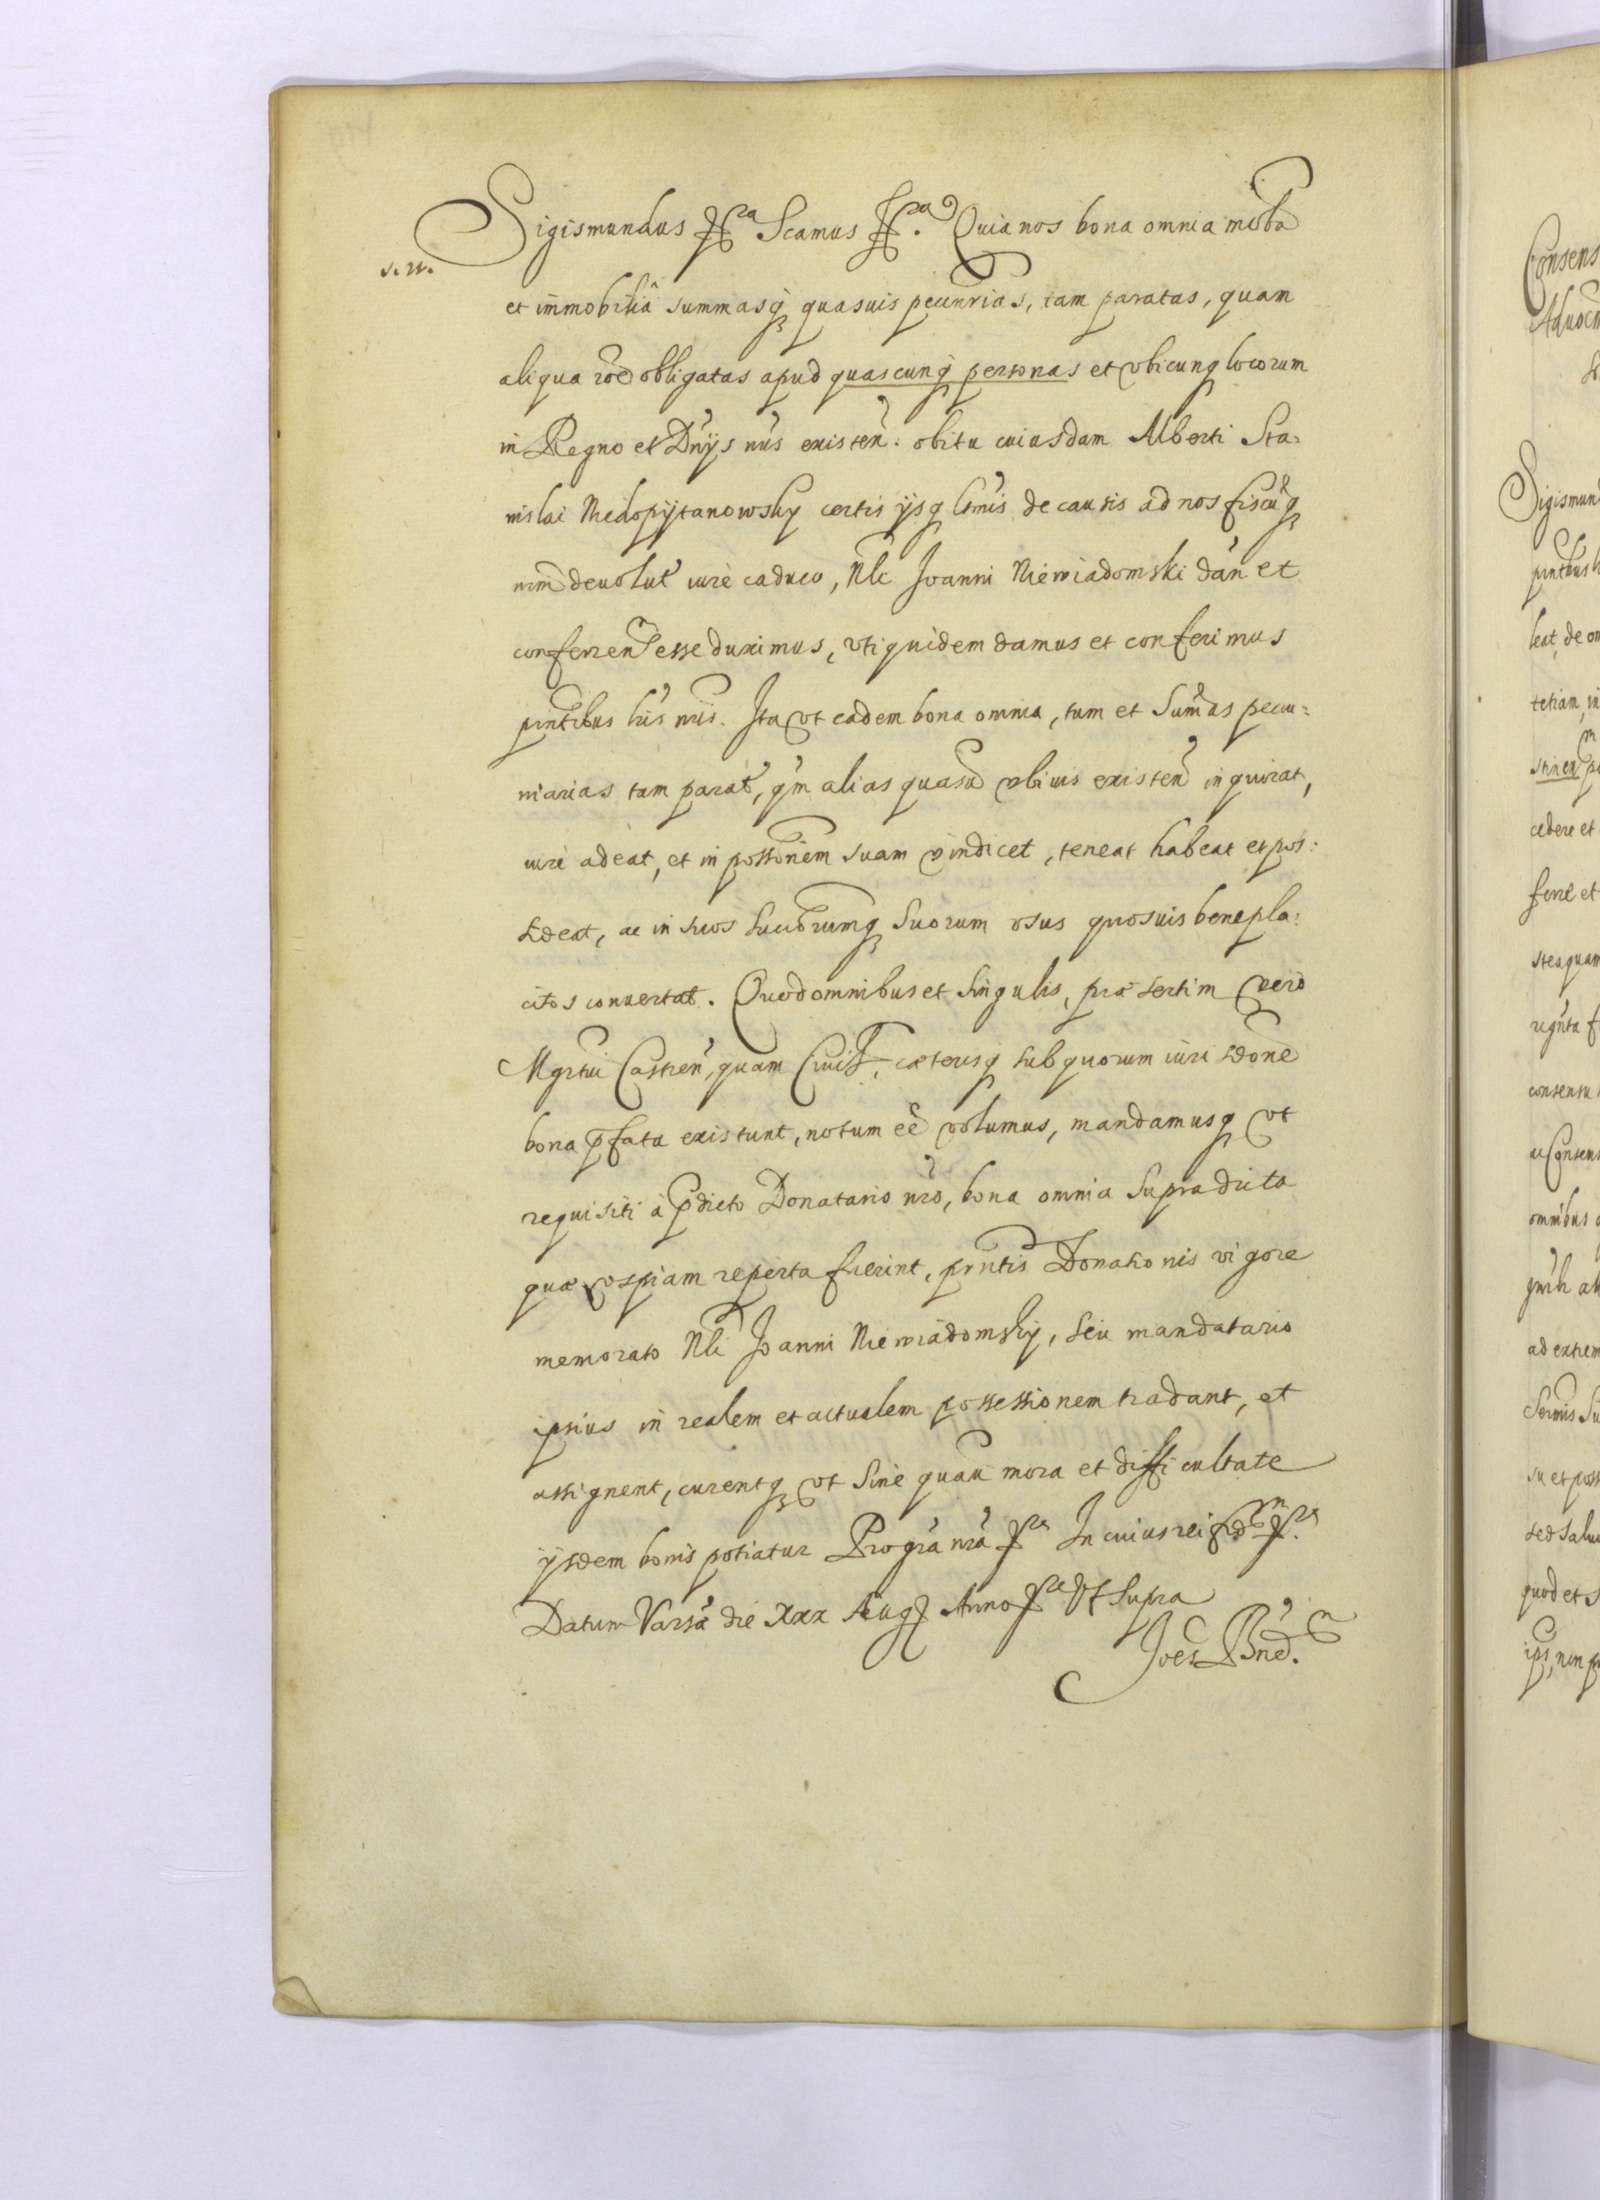 Sigismundus &ca Scamus &ca. Quia nos bona omnia mob̃a
s. n.
et immobilia summasq̃ quasuis pecunrias, tam paratas, quam
aliqua rõe obligatas apud quascunq̃ personas et vbicunq locorum
in Regno et Dnijs nris existen̄. obitu cuiusdam Alberti Sta:
nislai Niedopytanowsky certis ijsq ltmis de causis ad nos fiscūq
nrm̄ deuolut̃ iure caduco, Nlĩ Joanni Niewiadomski dan̄ et
conferren̄ esse duximus, vti quidem damus et conferimus
pn̄tibus lris nris. Ita vt eadem bona omnia, tum et Sum̄as pecu:
niarias tam parat̃, qm̄ alias quasū vbiuis existen̄ inquirat,
iure adeat, et in possonem suam vindicet, teneat habeat et pos:
sideat, ac in suos succrumq Suorum vsus quosuis benepla:
citos conuertat. Quod omnibus et Singulis, præsertim vero
Mgrtui Castren̄, quam Ciuil̃, cæterisq sub quorum iurisdone
bona p̄fata existunt, notum eē volumus, mandamusq vt
requisiti à p̄dicto Donatario nro, bona omnia Supradicta
quæ vspiam reperta fuerint, pn̄tis Donationis vigore
memorato Nlĩ Joanni Niewiadomsky, Seu mandatario
ipsius in realem et actualem possessionem tradant, et
assignent, curentq vt Sine quau mora et difficultate
ijsdem bonis potiatur Pro gra nra &ca In cuius rei fid̃m &ca.
Datum Varsã die XXX Aug Anno &ca Vt Supra
Joes
Consens
Sigismun
pntibus
leat, de om
tetiam, in
m
cedere et
ferre et
steaquam
consensu
ac Consens
omnibus
ad extrem
su et poss
sed salu
quod et s